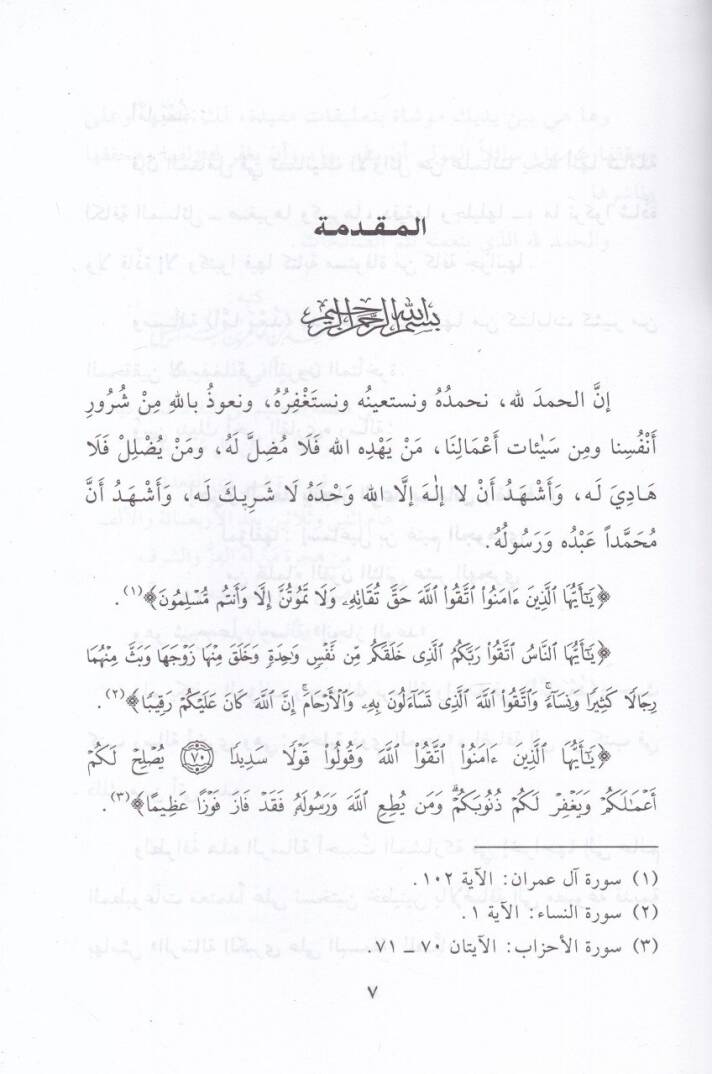 المقدمة
بسم الله الرحمن الرحيم
إنَّ الحمدَ لله، نحمدُهُ ونستعينُه ونستغْفِرُهُ، ونعوذُ باللهِ مِنْ شُرُورِ
أَنْفُسِنا ومِن سَيِّئات أَعْمَالِنَا، مَنْ يَهْدِه الله فَلَا مُضِلَّ لَهُ، ومَنْ يُضْلِلْ فَلَا
هَادِيَ لَـه، وَأَشْهَـدُ أَنْ لا إلٰهَ إلَّا الله وَحْدَهُ لَا شَرِيكَ لَـه، وَأَشْهَـدُ أنَّ
مُحَمَّداً عَبْدُه وَرَسُولُهُ.
﴿يَٰٓأَيُّهَا الَّذِينَ ءَامَنُوا اتَّقُوا اللَّهَ حَقَّ تُقَاتِهِۦ وَلَا تَمُوتُنَّ إِلَّا وَأَنتُم مُّسْلِمُونَ﴾(١).
﴿يَٰٓأَيُّهَا النَّاسُ اتَّقُوا رَبَّكُمُ الَّذِى خَلَقَكُم مِّن نَّفْسٍ وَٰحِدَةٍ وَخَلَقَ مِنْهَا زَوْجَهَا وَبَثَّ مِنْهُمَا
رِجَالًا كَثِيرًا وَنِسَآءً ۚ وَاتَّقُوا اللَّهَ الَّذِى تَسَآءَلُونَ بِهِۦ وَالْأَرْحَامَ ۚ إِنَّ اللَّهَ كَانَ عَلَيْكُمْ رَقِيبًا﴾(٢).
﴿يَٰٓأَيُّهَا الَّذِينَ ءَامَنُوا اتَّقُوا اللَّهَ وَقُولُوا قَوْلًا سَدِيدًا ۝٧٠ يُصْلِحْ لَكُمْ
أَعْمَٰلَكُمْ وَيَغْفِرْ لَكُمْ ذُنُوبَكُمْ ۗ وَمَن يُطِعِ اللَّهَ وَرَسُولَهُۥ فَقَدْ فَازَ فَوْزًا عَظِيمًا﴾(٣).
(١) سورة آل عمران: الآية ١٠٢.
(٢) سورة النساء: الآية ١.
(٣) سورة الأحزاب: الآيتان ٧٠ ــ ٧١.
٧